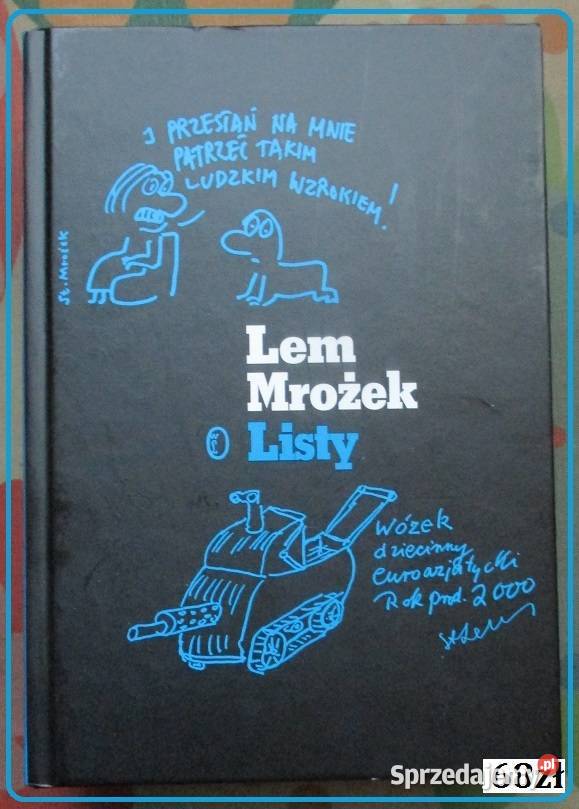 I PRZESTAŃ NA MNIE
PATRZEĆ TAKIM
LUDZKIM WZROKIEM!
St. Mrożek
Lem
Mrożek
Listy
Wózek
dziecinny
euroazjatycki
Rok prod. 2000
StLem
68zł
Sprzedajemy.pl